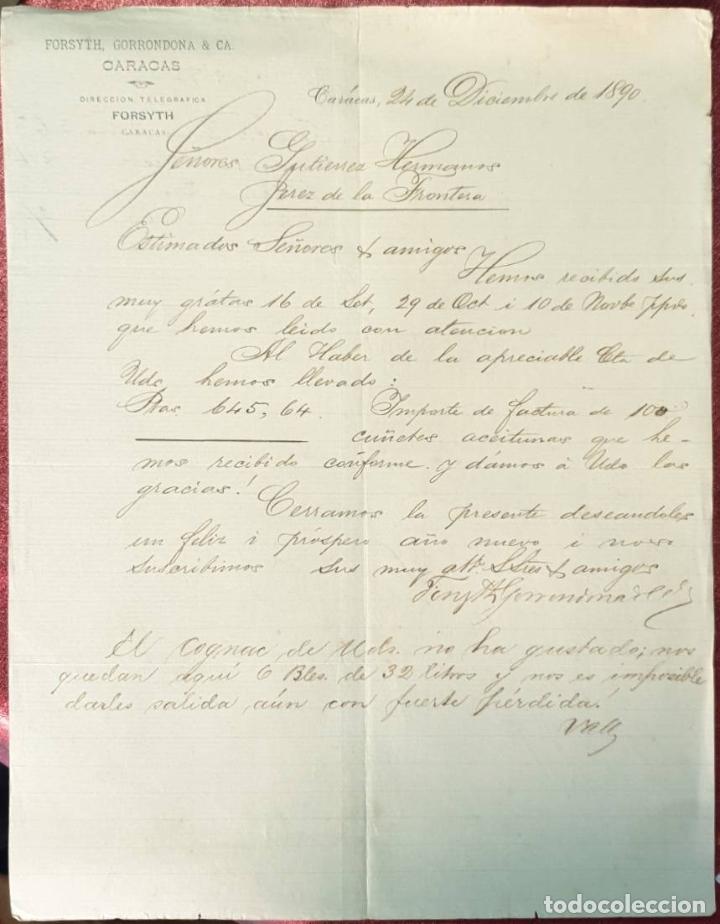 FORSYTH, GORRONDONA & CA.
CARACAS
DIRECCION TELEGRAFICA
FORSYTH
CARACAS
Carácas, 24 de Diciembre de 1890.
Señores Gutierrez Hermanos
Jerez de la Frontera
Estimados Señores & amigos
Hemos recibido sus
muy grátas 16 de Set, 29 de Oct i 10 de Novbe
que hemos leido con atencion
Al Haber de la apreciable Cta de
Uds hemos llevado:
Ptas 645,64. Importe de factura de 100
cuñetes aceitunas que he-
mos recibido conforme y dámos á Uds las
gracias!
Cerramos la presente deseandoles
un feliz i próspero año nuevo i nos
suscribimos sus muy att. S. Stres & amigos
Forsyth Gorrondona & Ca
El cognac de Uds. no ha gustado; nos
quedan aquí 6 Bles. de 32 litros y nos es imposible
darles salida, aún con fuerte pérdida!
todocoleccion